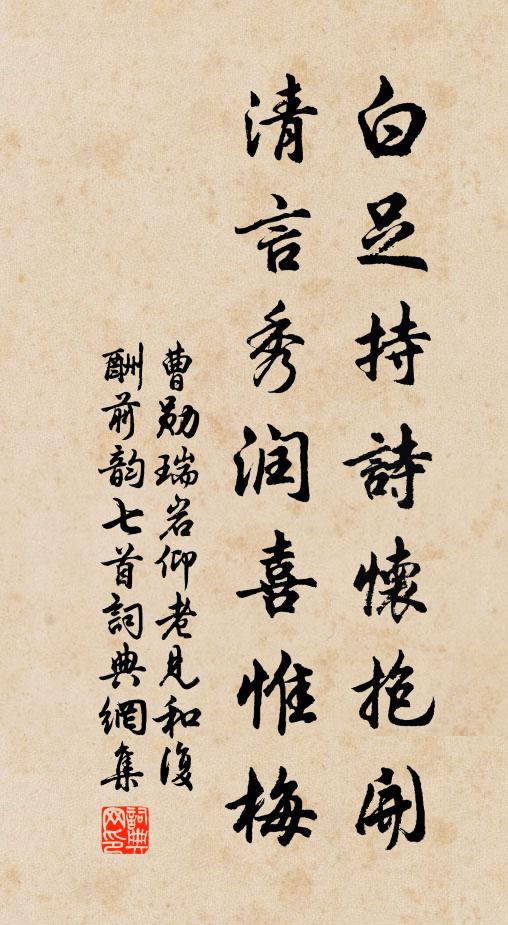 白足持詩懷抱開
清言秀润喜惟梅
曹勋瑞岩仰老見和復
酬前韵七首詞典網集
詞典网印